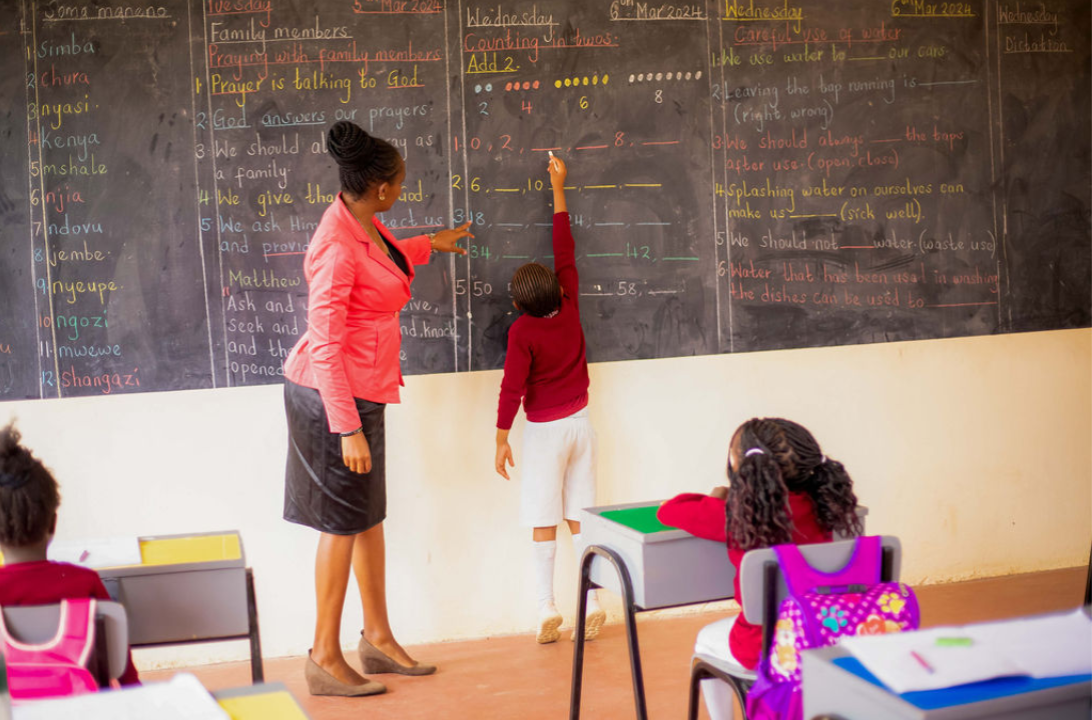 Soma maneno
1. Simba
2 Chura
3 nyasi.
4 Kenya
5 mshale
6 njia
7 ndovu
8 jembe.
9 nyeupe.
10 ngozi
11. mwewe
12 Shangazi
Tuesday 5th Mar 2024
Family members
Praying with family members
1. Prayer is talking to God.
2. God answers our prayers.
3. We should as
a family.
4. We give God.
5. We ask Him us
and
Matthew
Ask and
seek and knock
and the
opened
Wednesday 6th Mar 2024
Counting in twos.
Add 2.
2 4 6 8
1. 0, 2, __, __ 8, __
2. 6, __, 10, __, __
__, __
34, __ 42, __
5. 50 __ 58, __
Wednesday 6th Mar 2024
Careful use of water
1. We use water to ___ our cars.
2. Leaving the tap running is ___
(right, wrong)
3. We should always ___ the taps
after use. (open, close)
4. Splashing water on ourselves can
make us ___ (sick well).
5 We should not ___ water. (waste use)
6 Water that has been used in washing
the dishes can be used to ___
Wednesday
Dictation